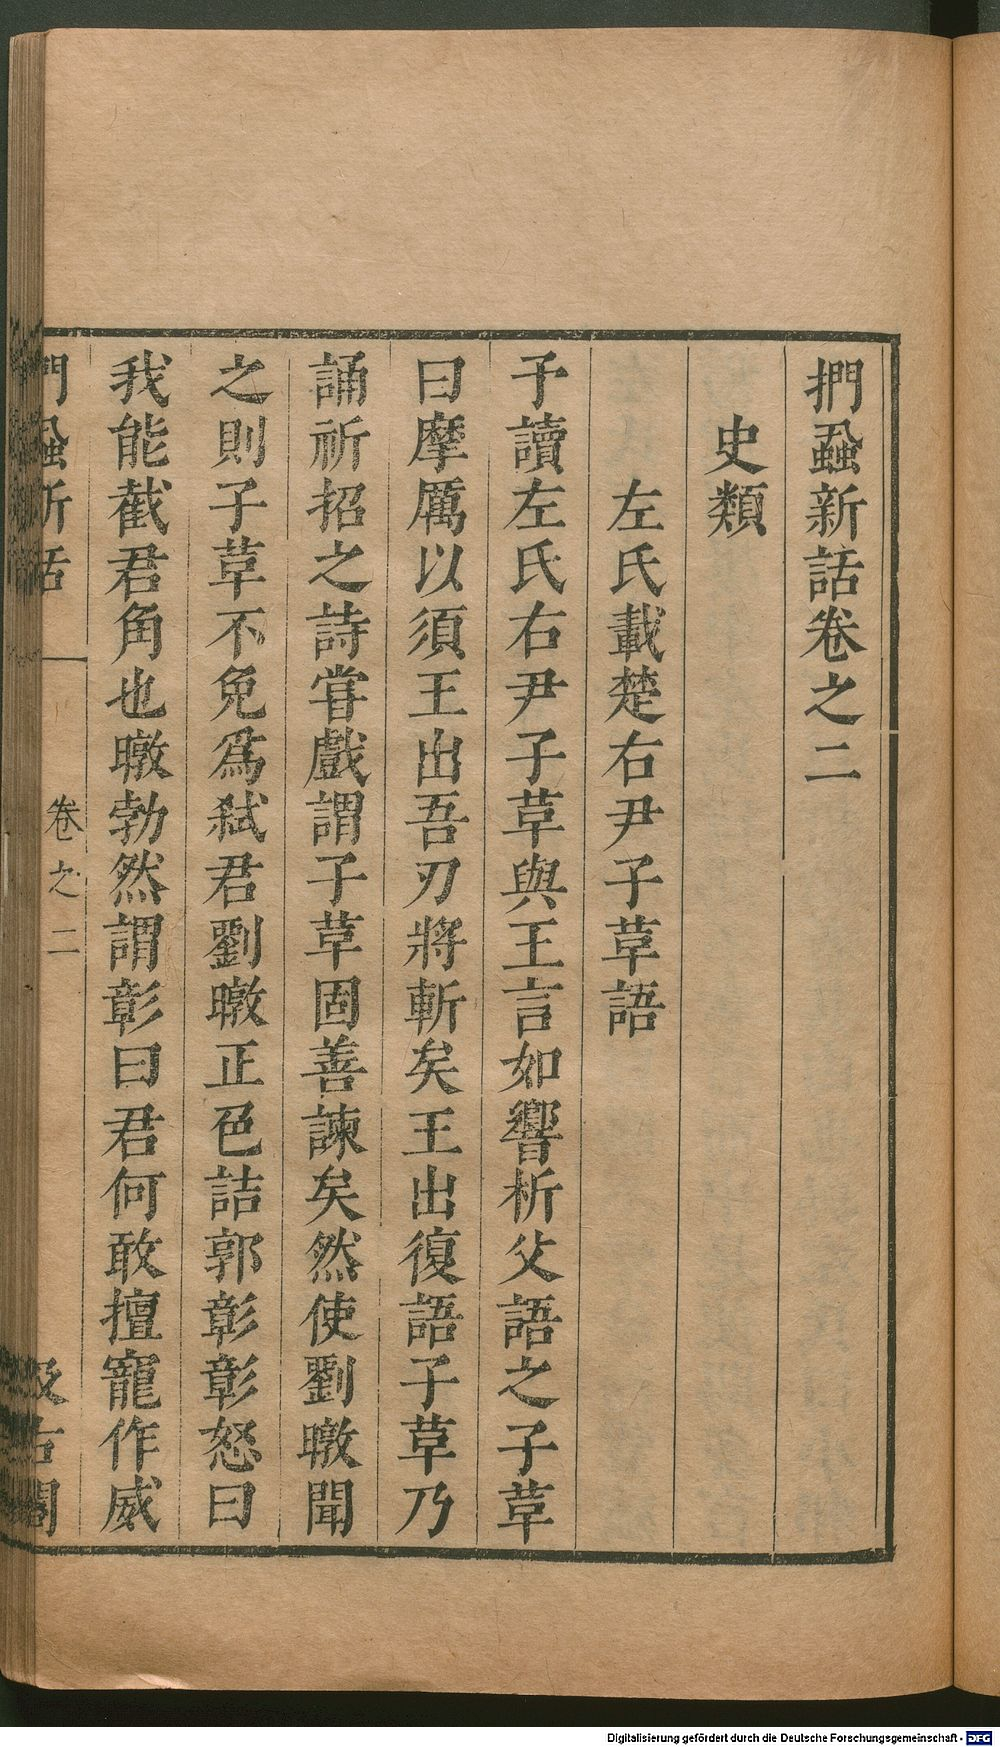 捫蝨新話卷之二
史類
左氏載楚右尹子革語
予讀左氏右尹子革與王言如響析父語之子革
曰摩厲以須王出吾刃將斬矣王出復語子革乃
誦祈招之詩嘗戲謂子革固善諫矣然使劉暾聞
之則子革不免爲弑君劉暾正色詰郭彰彰怒曰
我能截君角也暾勃然謂彰曰君何敢擅寵作威
捫蝨新話
卷之二
汲古閣
Digitalisierung gefördert durch die Deutsche Forschungsgemeinschaft - DFG